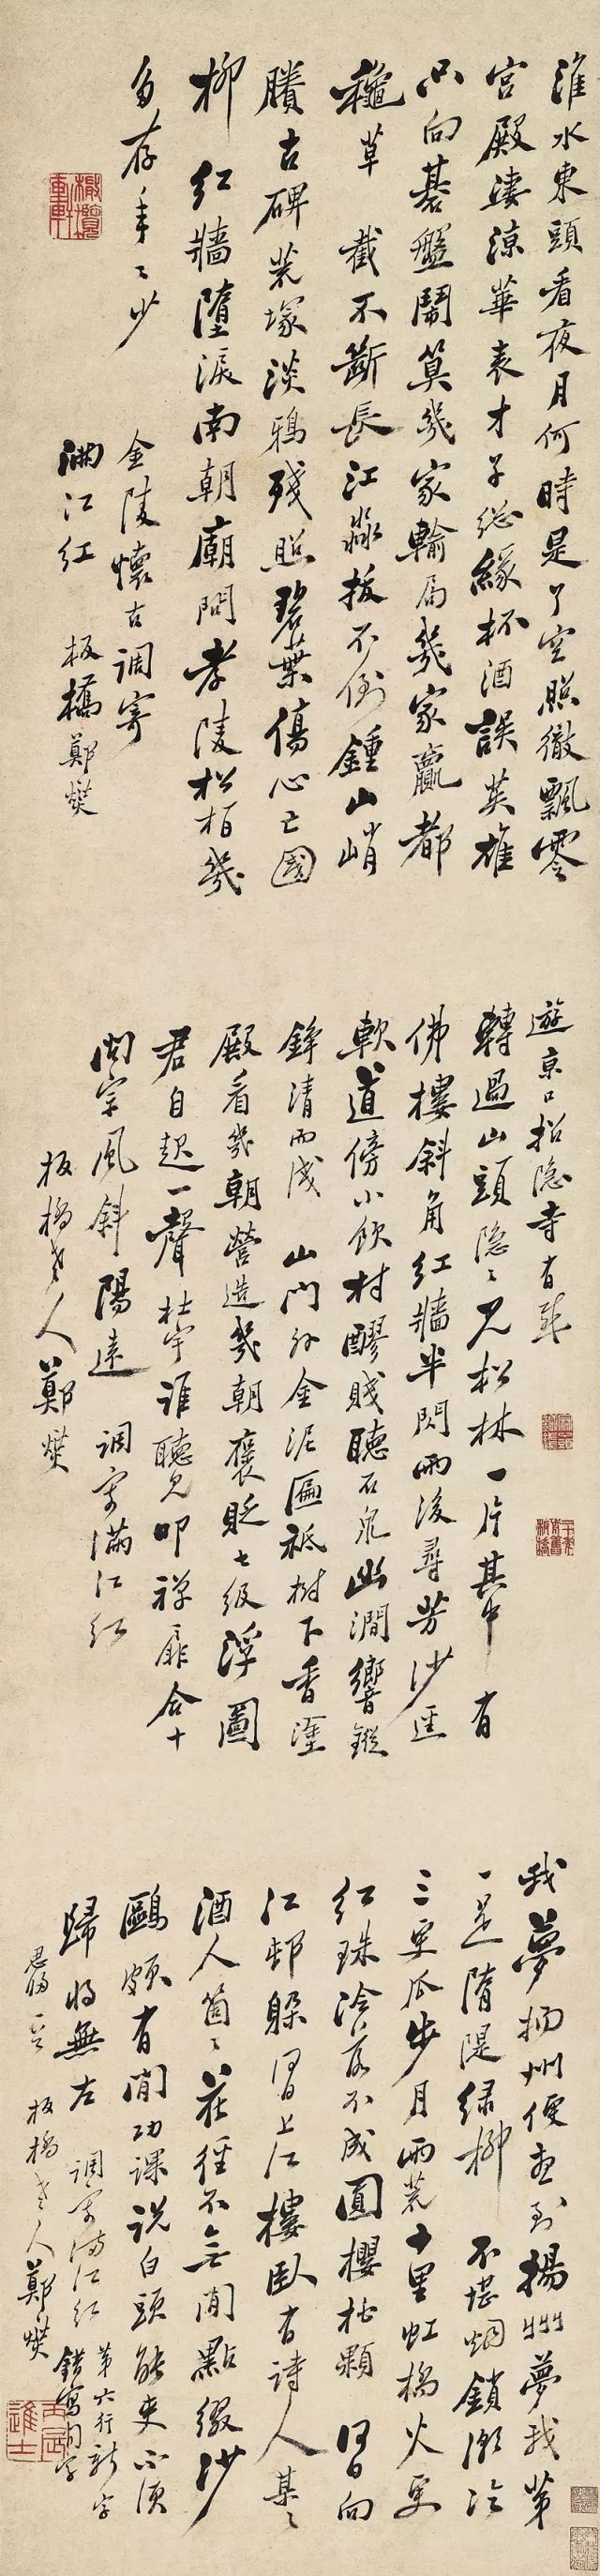 淮水東頭看夜月何時是了空照徹飄零
宮殿淒涼華表才子總緣杯酒誤英雄
只向碁盤鬧算幾家輸局幾家贏都
穐草　截不斷長江淼拔不倒鍾山峭
賸古碑荒塚淡鴉殘照碧葉傷心亡國
柳　紅牆墮淚南朝廟問孝陵松柏幾
多存年〻少
金陵懷古調寄
滿江紅　板橋鄭燮
遊京口招隱寺有感
轉過山頭隱〻見松林一片其中有
佛樓斜角紅牆半閃雨後尋芳沙徑
軟道傍小飲村醪賤聽石泉幽澗響鏦
錚清而淺　山門外金泥匾祗樹下香塗
殿看幾朝營造幾朝褒貶七級浮圖
君自起一聲杜宇誰聽見叩禪扉合十
問宗風斜陽遠　調寄滿江紅
板橋老人鄭燮
我夢揚州便想到揚州夢我第
一是隋隄綠柳　不堪烟鎖潮冷
三更瓜步月雨荒十里虹橋火更
紅珠冷落不成圓櫻桃顆　何日向
江邨躲何日上江樓臥有詩人某〻
酒人箇〻花徑不無閒點綴沙
鷗頗有閒功課說白頭能更不須
歸將無左　調寄滿江紅
思歸一首　板橋老人鄭燮
第六行新字
錯寫閒字
丙辰進士